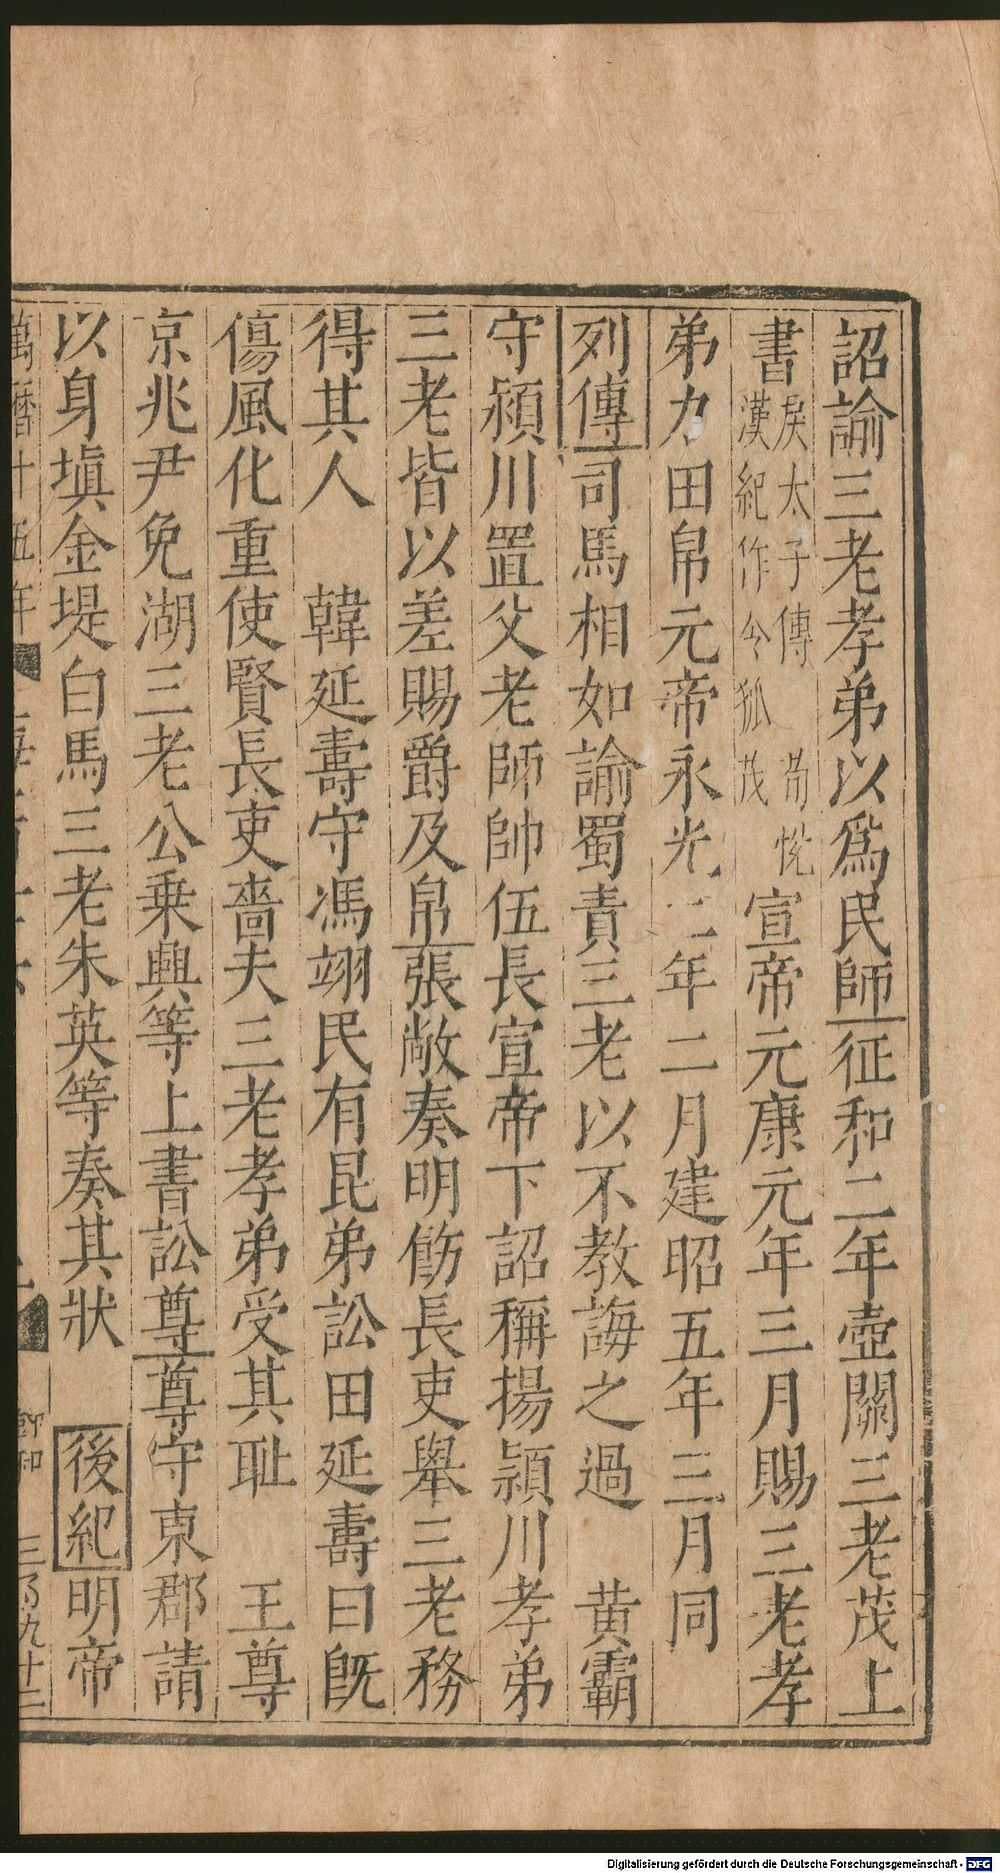 詔諭三老孝弟以爲民師征和二年壺關三老茂上
書戾太子傳荀悅漢紀作令狐茂宣帝元康元年三月賜三老孝
弟力田帛元帝永光二年二月建昭五年三月同
列傳司馬相如諭蜀責三老以不教誨之過　黄霸
守潁川置父老師帥伍長宣帝下詔稱揚潁川孝弟
三老皆以差賜爵及帛張敞奏明飭長吏舉三老務
得其人　韓延壽守馮翊民有昆弟訟田延壽曰旣
傷風化重使賢長吏嗇夫三老孝弟受其恥　王尊
京兆尹免湖三老公乗興等上書訟尊尊守東郡請
以身塡金堤白馬三老朱英等奏其狀　後紀明帝
萬曆十五年
三百九十二
Digitalisierung gefördert durch die Deutsche Forschungsgemeinschaft - DFG